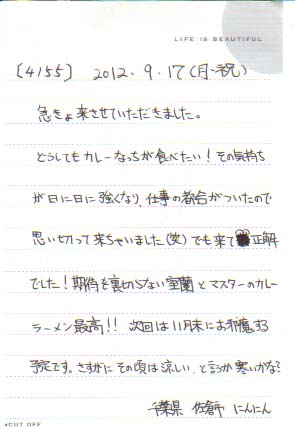 LIFE IS BEAUTIFUL
[4155] 2012.9.17(月・祝)
急きょ来させていただきました。
どうしてもカレーなっちが食べたい!その気持ち
が日に日に強くなり、仕事の都合がついたので
思い切って来ちゃいました(笑)でも来て正解
でした!期待を裏切らない室蘭とマスターのカレー
ラーメン最高!!次回は11月末にお邪魔する
予定です。さすがにその頃は涼しい、と言うか寒いかな?
千葉県 佐倉市 にんにん
CUT OFF